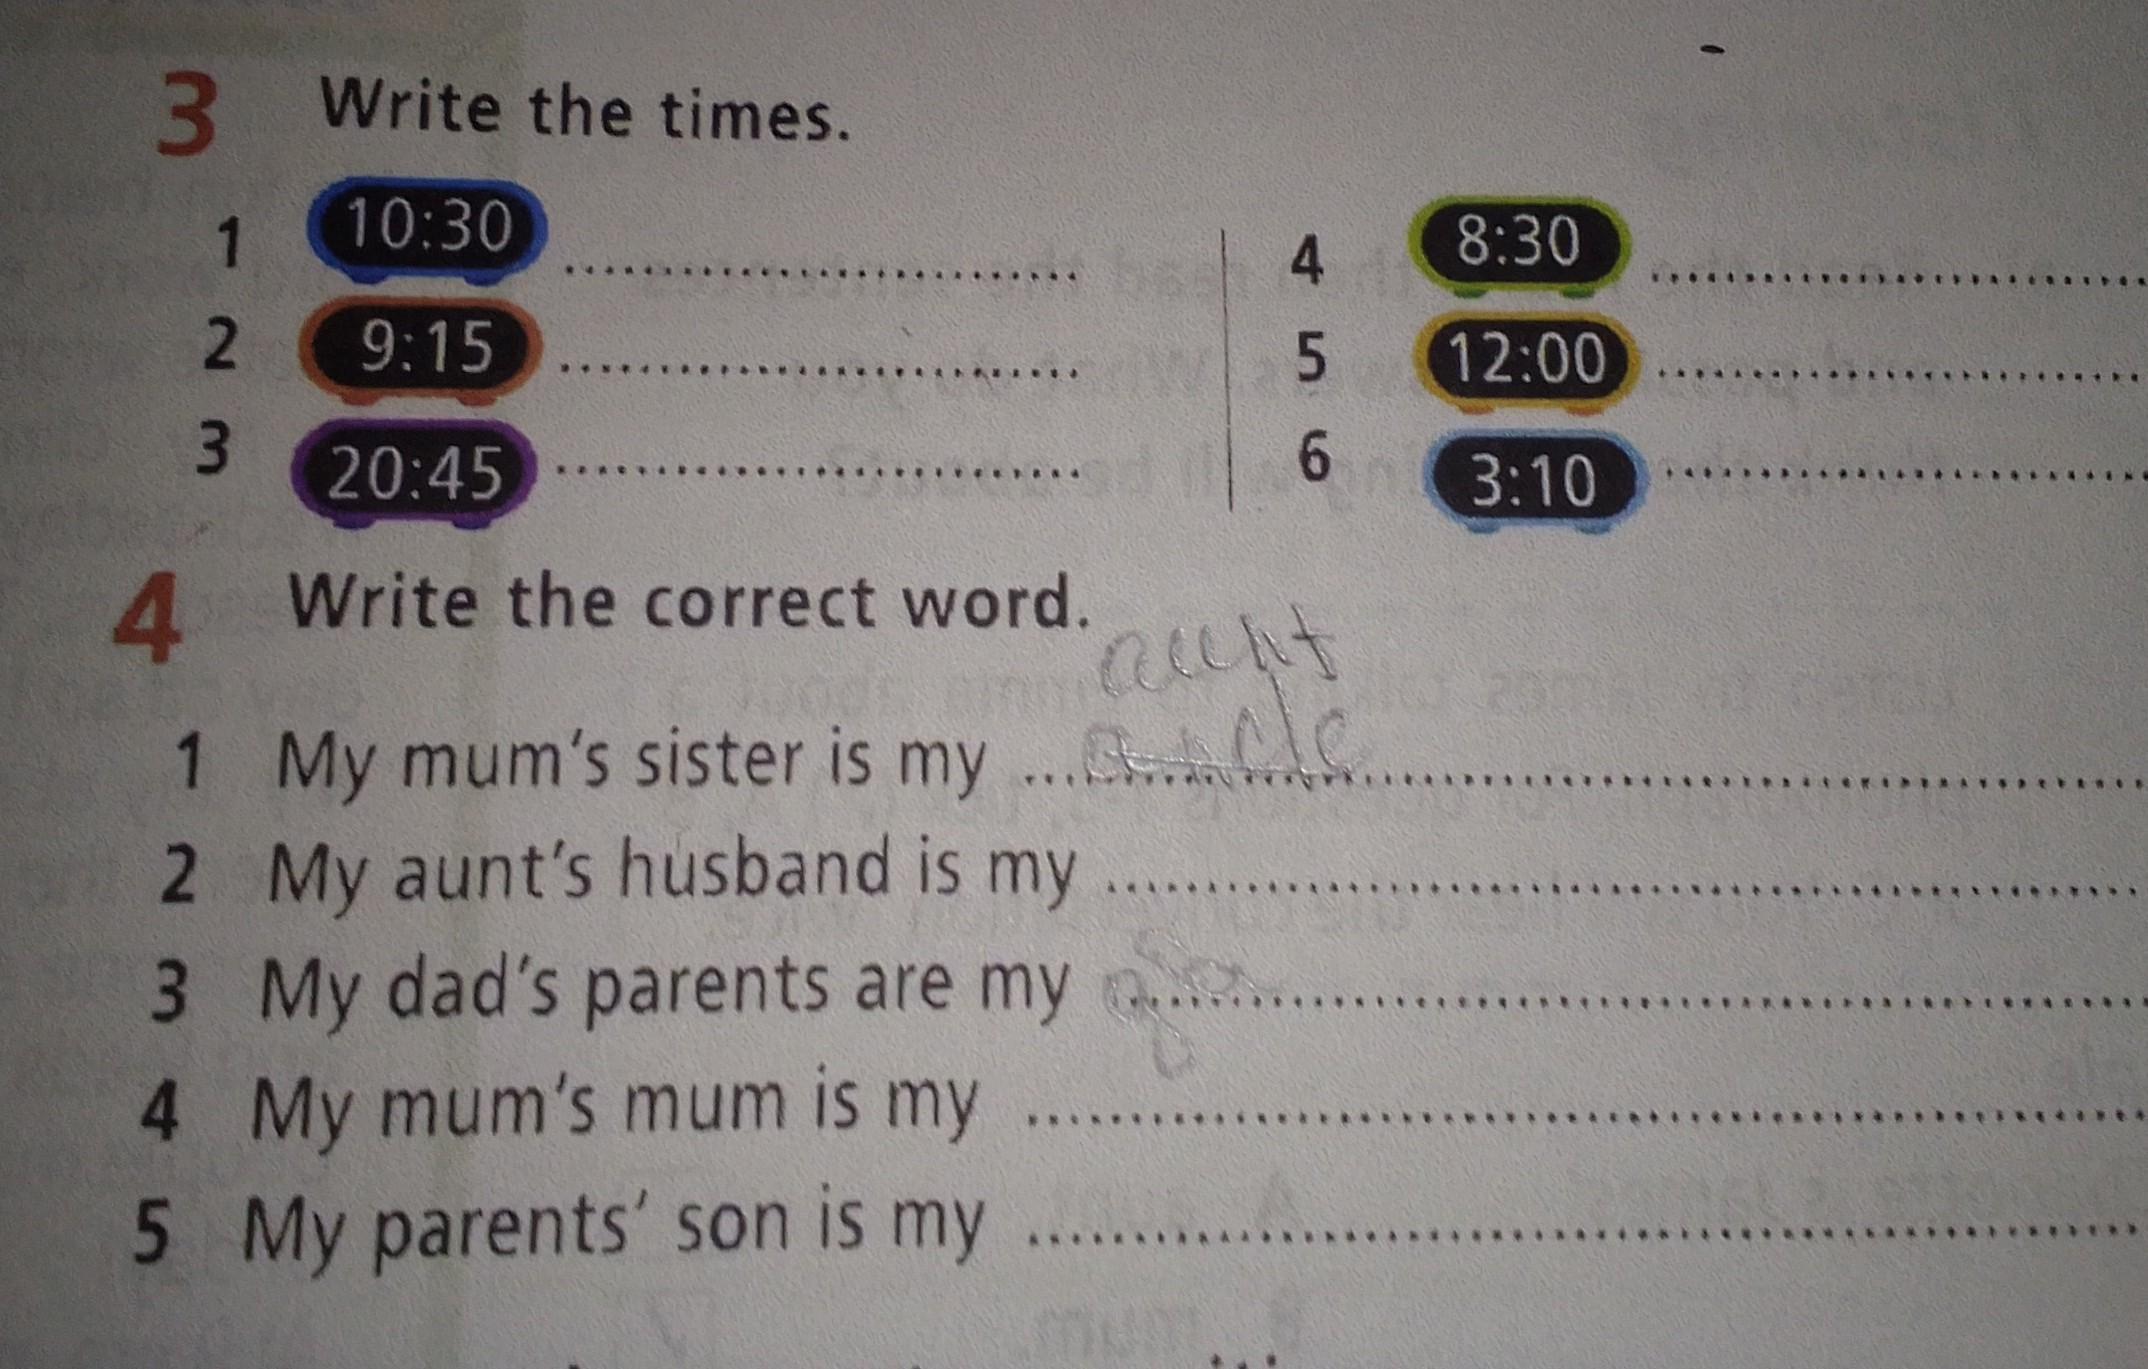 3 Write the times.
1 10:30 ..............................
2 9:15 ..............................
3 20:45 ..............................
4 8:30 ..............................
5 12:00 ..............................
6 3:10 ..............................
4 Write the correct word.
aunt
1 My mum's sister is my ..............................
2 My aunt's husband is my ..............................
3 My dad's parents are my ..............................
4 My mum's mum is my ..............................
5 My parents' son is my ..............................